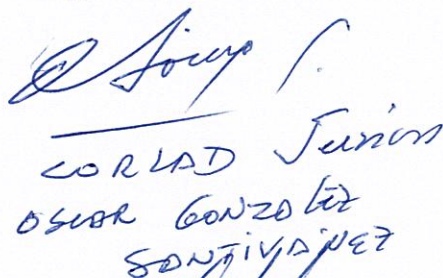 CORLAD Junin
OSCAR GONZALEZ
SANTIVAÑEZ